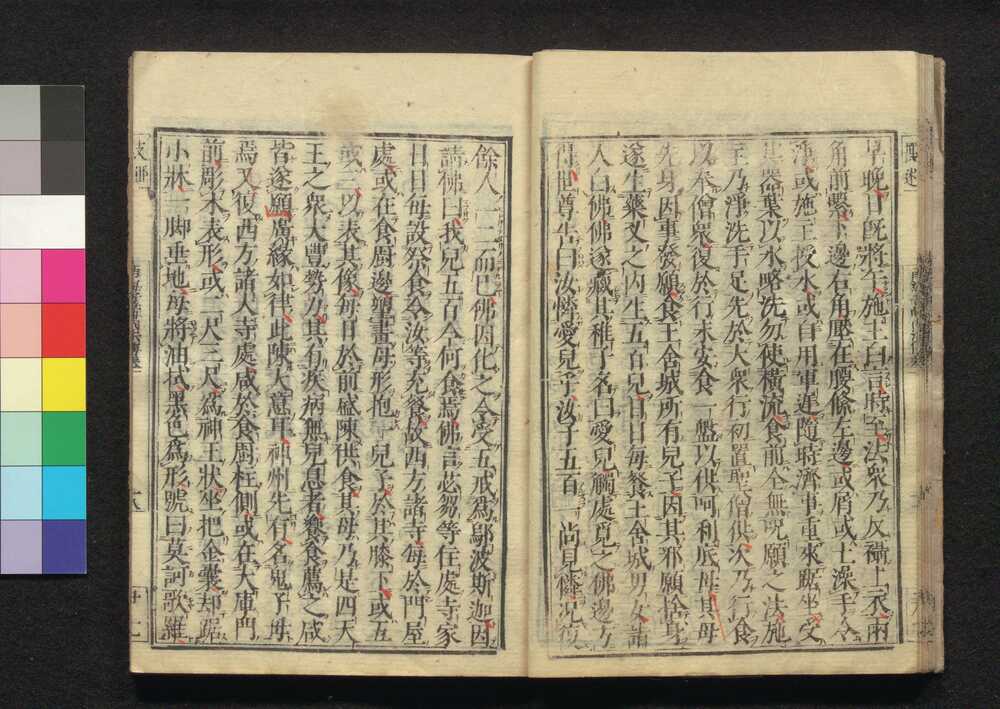 早晩日既將午施主白言時至法衆乃反襵上衣兩
角前繫下邊右角壓在腰絛左邊或屑或土澡手令
淨或施主授水或自用軍遲隨時濟事重來踞坐受
其器葉以水略洗勿使橫流食前全無呪願之法施
主乃淨洗手足先於大衆行初置聖僧供次乃行食
以奉僧衆復於行末安食一盤以供呵利底母其母
先身因事發願食王舍城所有兒子因其邪願捨身
遂生藥叉之内生五百兒日日每餐王舍城男女諸
人白佛佛遂藏其稚子名曰愛兒觸處覓之佛邊方
得世尊告曰汝憐愛兒乎汝子五百一尚見憐況復
餘人一二而已佛因化之令受五戒爲鄔波斯迦因
請佛曰我兒五百今何食焉佛言苾芻等住處寺家
日日每設祭食令汝等充餐故西方諸寺每於門屋
處或在食廚邊塑畫母形抱一兒子於其膝下或五
或三以表其像每日於前盛陳供食其母乃是四天
王之衆大豐勢力其有疾病無兒息者饗食薦之咸
皆遂願廣緣如律此陳大意耳神州先有名鬼子母
焉又復西方諸大寺處咸於食廚柱側或在大庫門
前彫木表形或二尺三尺爲神王狀坐把金囊却踞
小牀一脚垂地每將油拭黑色爲形號曰莫訶歌羅